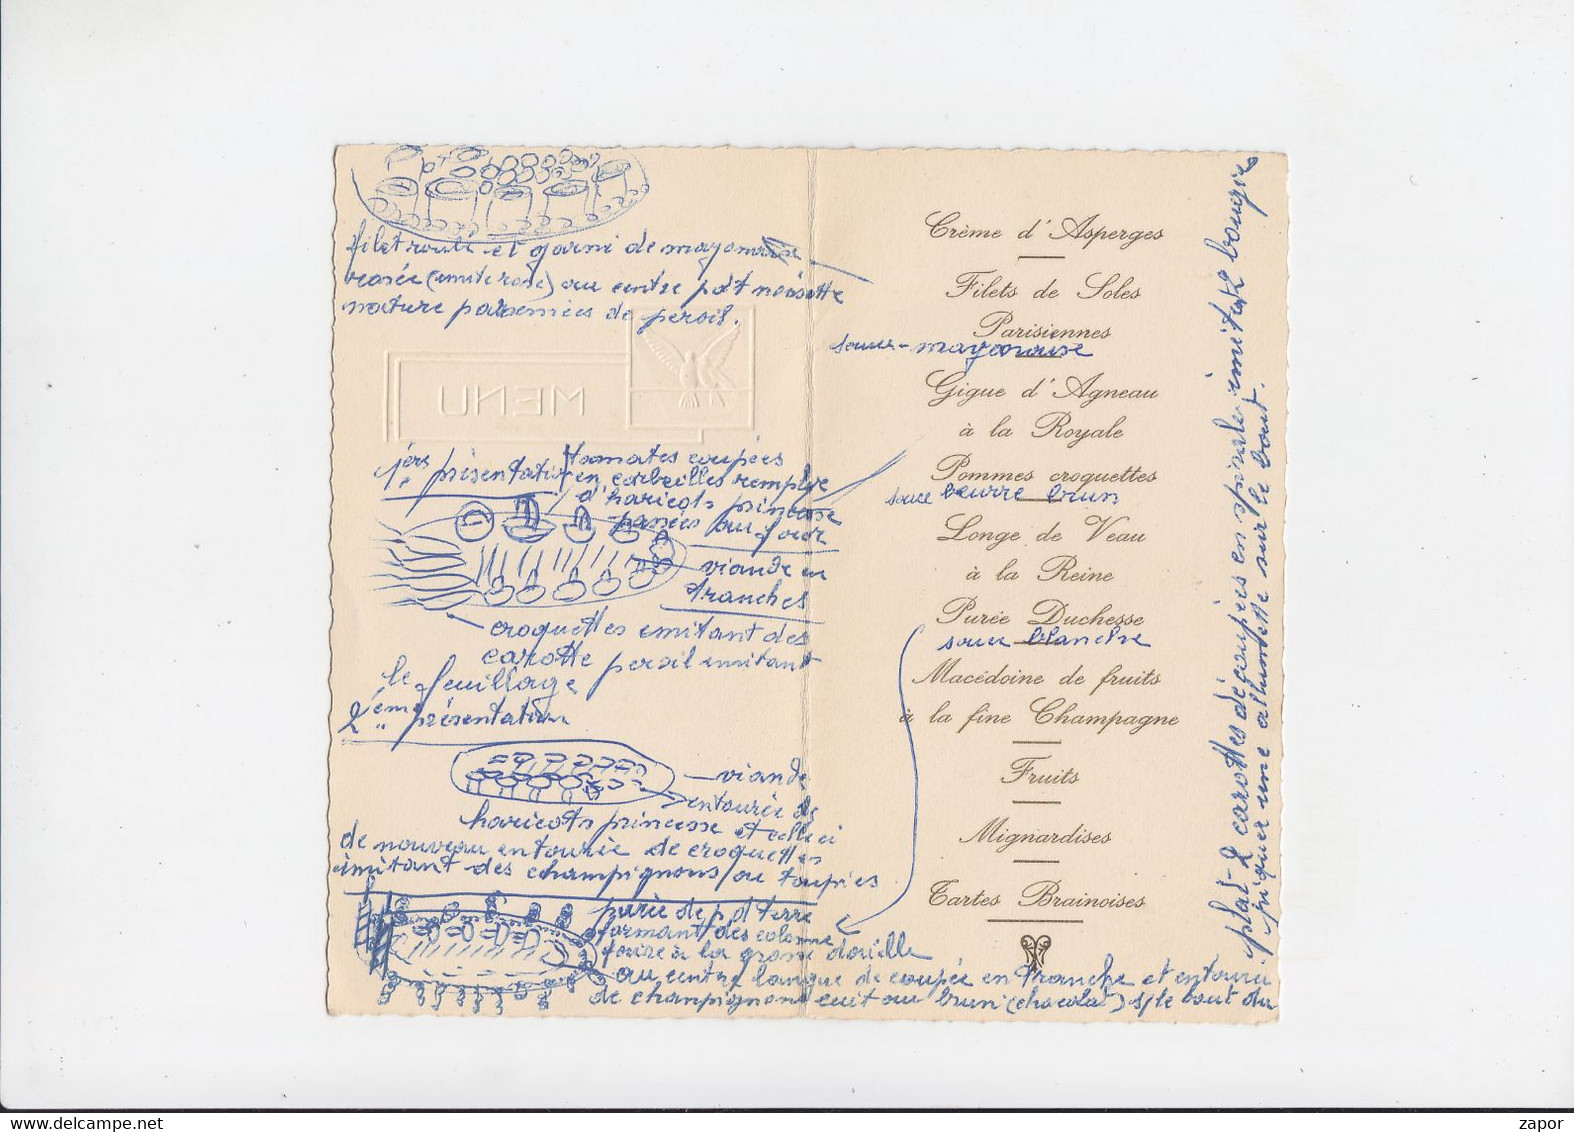 filet roulé et garni de mayonnaise
rosée (imite rose) au centre p d t noisette
nature parsemées de persil.
MENU
1ère présentation
tomates coupées
en corbeilles remplye
d'haricots princesse
passées au four
viande en
tranches
croquettes emitant des
carotte persil imitant
le feuillage
2ème présentation
viande
entourée de
haricots princesse et celle ci
de nouveau entourée de croquettes
imitant des champignons/ou toupies
purée de p d terre
formant des colonne
faire à la grosse douille
au centre langue de coupée en tranche et entouré
de champignons cuit au brun (chocolat) s/le bout du
plat - 2 carottes découpées en spirale imitat bougie
piquer une allumette sur le bout.
Crème d'Asperges
Filets de Soles
Parisiennes
sauce - mayonnaise
Gigue d'Agneau
à la Royale
Pommes croquettes
sauce beurre brun
Longe de Veau
à la Reine
Purée Duchesse
sauce blanche
Macédoine de fruits
à la fine Champagne
Fruits
Mignardises
Tartes Brainoises
delcampe.net
zapor